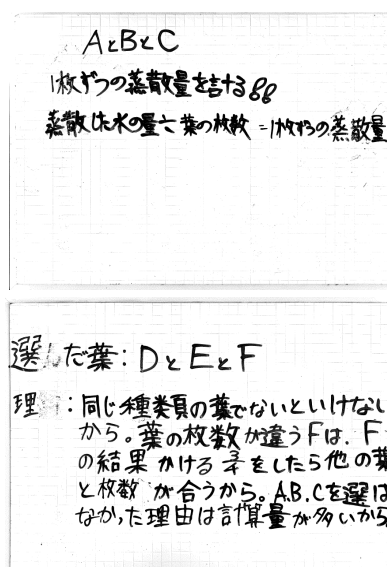 AとBとC
1枚ずつの蒸散量を計する
蒸散した水の量÷葉の枚数=1枚ずつの蒸散量
選んだ葉:DとEとF
理 :同じ種類の葉でないといけない
から。葉の枚数が違うFは、F
の結果かける をしたら他の葉
と枚数が合うから。A.B.Cを選ば
なかった理由は計算量が多いから